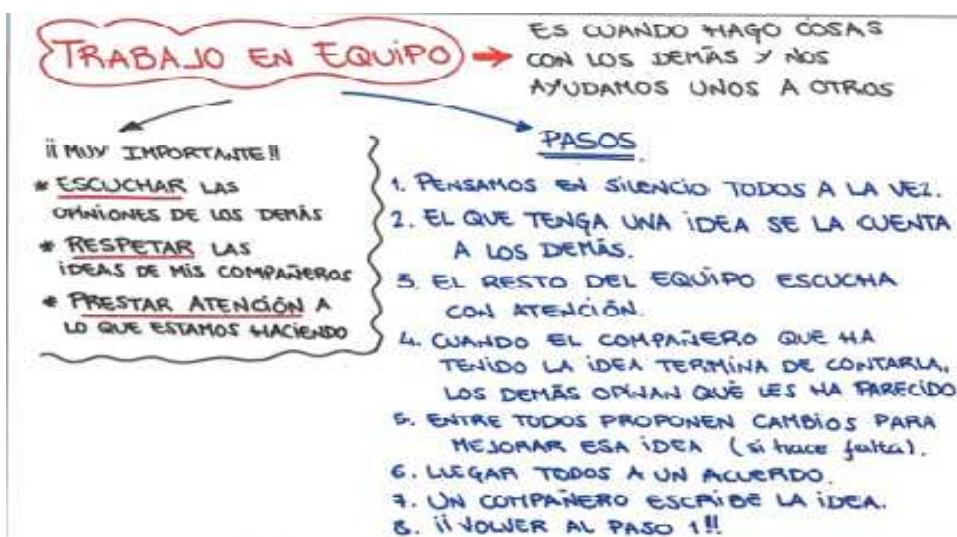 TRABAJO EN EQUIPO
ES CUANDO HAGO COSAS
CON LOS DEMÁS Y NOS
AYUDAMOS UNOS A OTROS
¡¡MUY IMPORTANTE!!
* ESCUCHAR LAS
OPINIONES DE LOS DEMÁS
* RESPETAR LAS
IDEAS DE MIS COMPAÑEROS
* PRESTAR ATENCIÓN A
LO QUE ESTAMOS HACIENDO
PASOS
1. PENSAMOS EN SILENCIO TODOS A LA VEZ.
2. EL QUE TENGA UNA IDEA SE LA CUENTA
A LOS DEMÁS.
3. EL RESTO DEL EQUIPO ESCUCHA
CON ATENCIÓN.
4. CUANDO EL COMPAÑERO QUE HA
TENIDO LA IDEA TERMINA DE CONTARLA,
LOS DEMÁS OPINAN QUÉ LES HA PARECIDO
5. ENTRE TODOS PROPONEN CAMBIOS PARA
MEJORAR ESA IDEA (si hace falta).
6. LLEGAR TODOS A UN ACUERDO.
7. UN COMPAÑERO ESCRIBE LA IDEA.
8. ¡¡VOLVER AL PASO 1!!